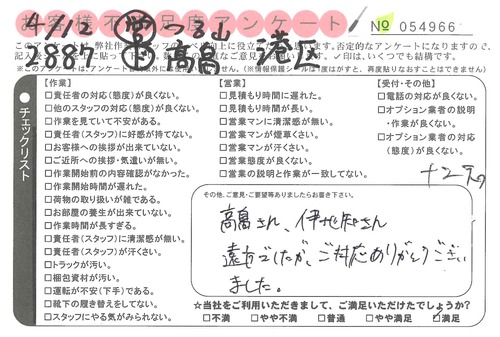 お客様不満足度アンケート
No 054966
4/12
2887 高畠 港区
チェックリスト
【作業】
□責任者の対応(態度)が良くない。
□他のスタッフの対応(態度)が良くない。
□作業を見ていて不安がある。
□責任者(スタッフ)に好感が持てない。
□お客様への挨拶が出来ていない。
□ご近所への挨拶・気遣いが無い。
□作業開始前の内容確認がなかった。
□作業開始時間が遅れた。
□荷物の取り扱いが雑である。
□お部屋の養生が出来ていない。
□作業時間が長すぎる。
□責任者(スタッフ)に清潔感が無い。
□責任者(スタッフ)が汗くさい。
□トラックが汚い。
□梱包資材が汚い。
□運転が不安(下手)である。
□靴下の履き替えをしてない。
□スタッフにやる気がみられない。
【営業】
□見積もり時間に遅れた。
□見積もり時間が長い。
□営業マンに清潔感が無い。
□営業マンが煙草くさい。
□営業マンが汗くさい。
□営業態度が良くない。
□営業の説明と作業が一致してない。
【受付・その他】
□電話の対応が良くない。
□オプション業者の説明
・作業が良くない。
□オプション業者の対応
(態度)が良くない。
その他、ご意見・ご要望等ありましたらお書き下さい。
高畠さん、伊地知さん
遠方でしたが、ご対応ありがとうござい
ました。
☆当社をご利用いただきまして、ご満足いただけたでしょうか?
□不満 □やや不満 □普通 □やや満足 □満足